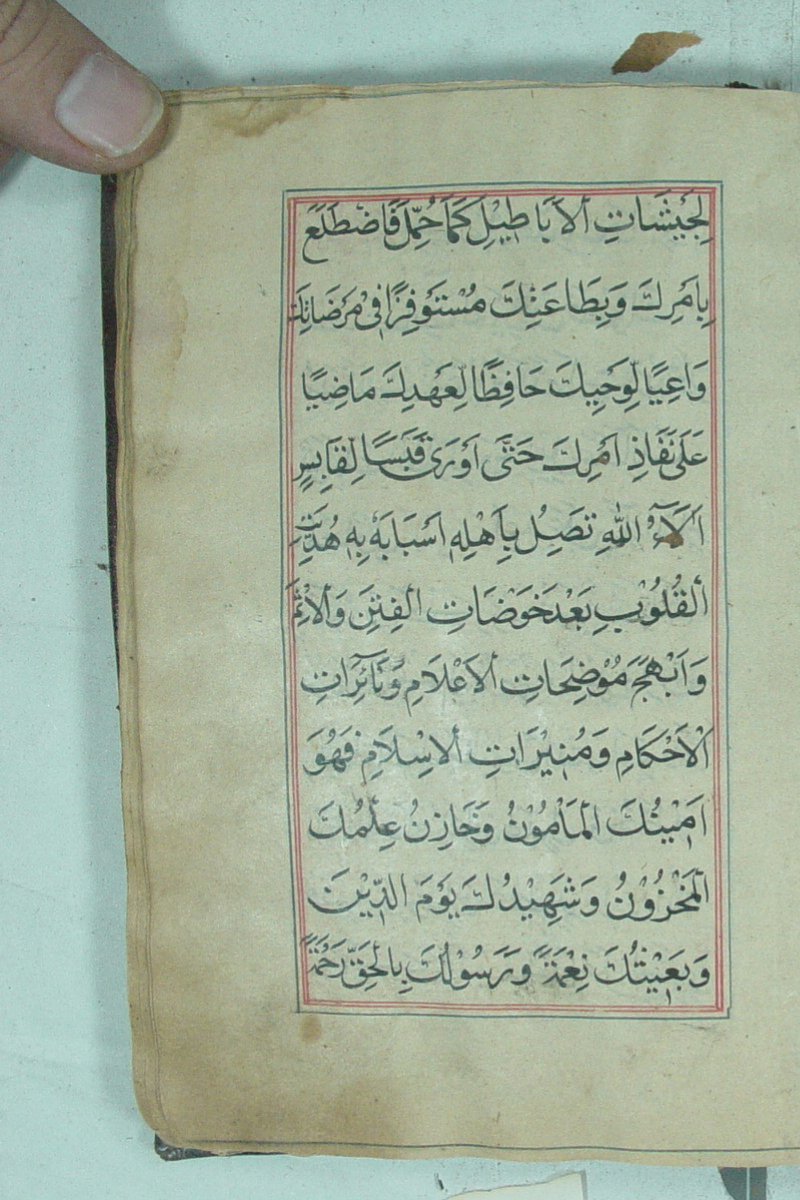 لِجَيْشَاتِ الْاَبَاطِيْلِ كَمَا حُمِّلَ فَاضْطَلَعَ
بِاَمْرِكَ وَبِطَاعَتِكَ مُسْتَوْفِزًا فِیْ مَرْضَاتِكَ
وَاعِيًا لِوَحْيِكَ حَافِظًا لِعَهْدِكَ مَاضِيًا
عَلٰی نَفَاذِ اَمْرِكَ حَتّٰی اَوْرَیٰ قَبَسًا لِقَابِسٍ
اٰلَاۤءُ اللّٰهِ تَصِلُ بِاَهْلِهٖ اَسْبَابَهٗ بِهٖ هُدِيَتِ
الْقُلُوْبُ بَعْدَ خَوْضَاتِ الْفِتَنِ وَالْاِثْمِ
وَاَبْهَجَ مُوْضِحَاتِ الْاَعْلَامِ وَنَاۤئِرَاتِ
الْاَحْكَامِ وَمُنِيْرَاتِ الْاِسْلَامِ فَهُوَ
اَمِيْنُكَ الْمَاْمُوْنُ وَخَازِنُ عِلْمِكَ
الْمَخْزُوْنُ وَشَهِيْدُكَ يَوْمَ الدِّيْنَ
وَبَعِيْثُكَ نِعْمَةً وَرَسُوْلُكَ بِالْحَقِّ رَحْمَةً